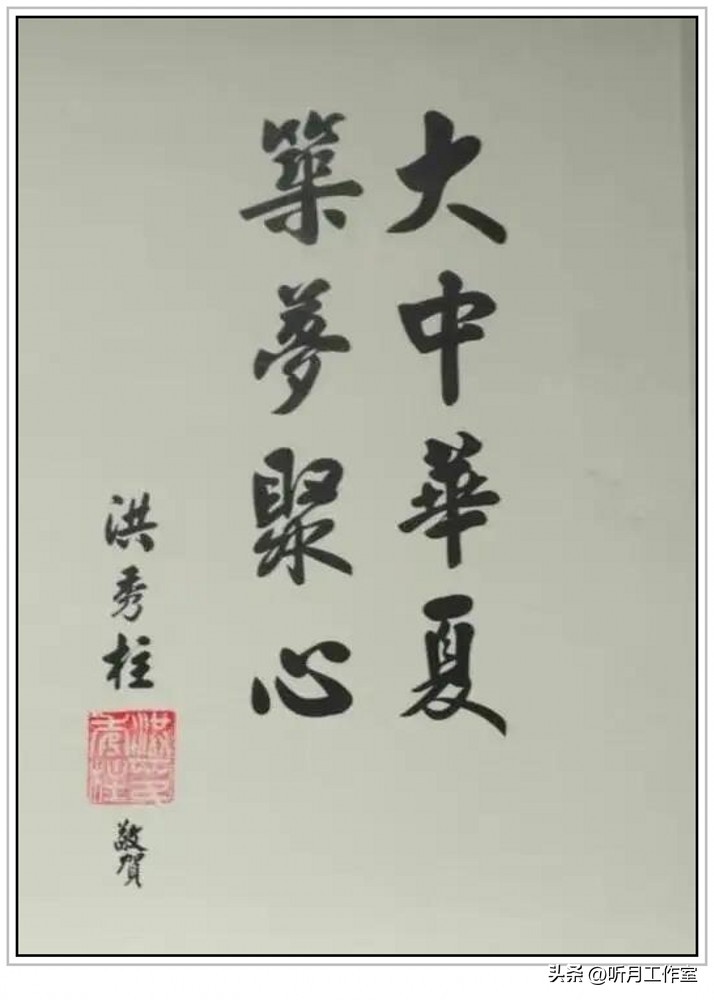 大中華夏
築夢聚心
洪秀柱
敬賀
头条 @听月工作室